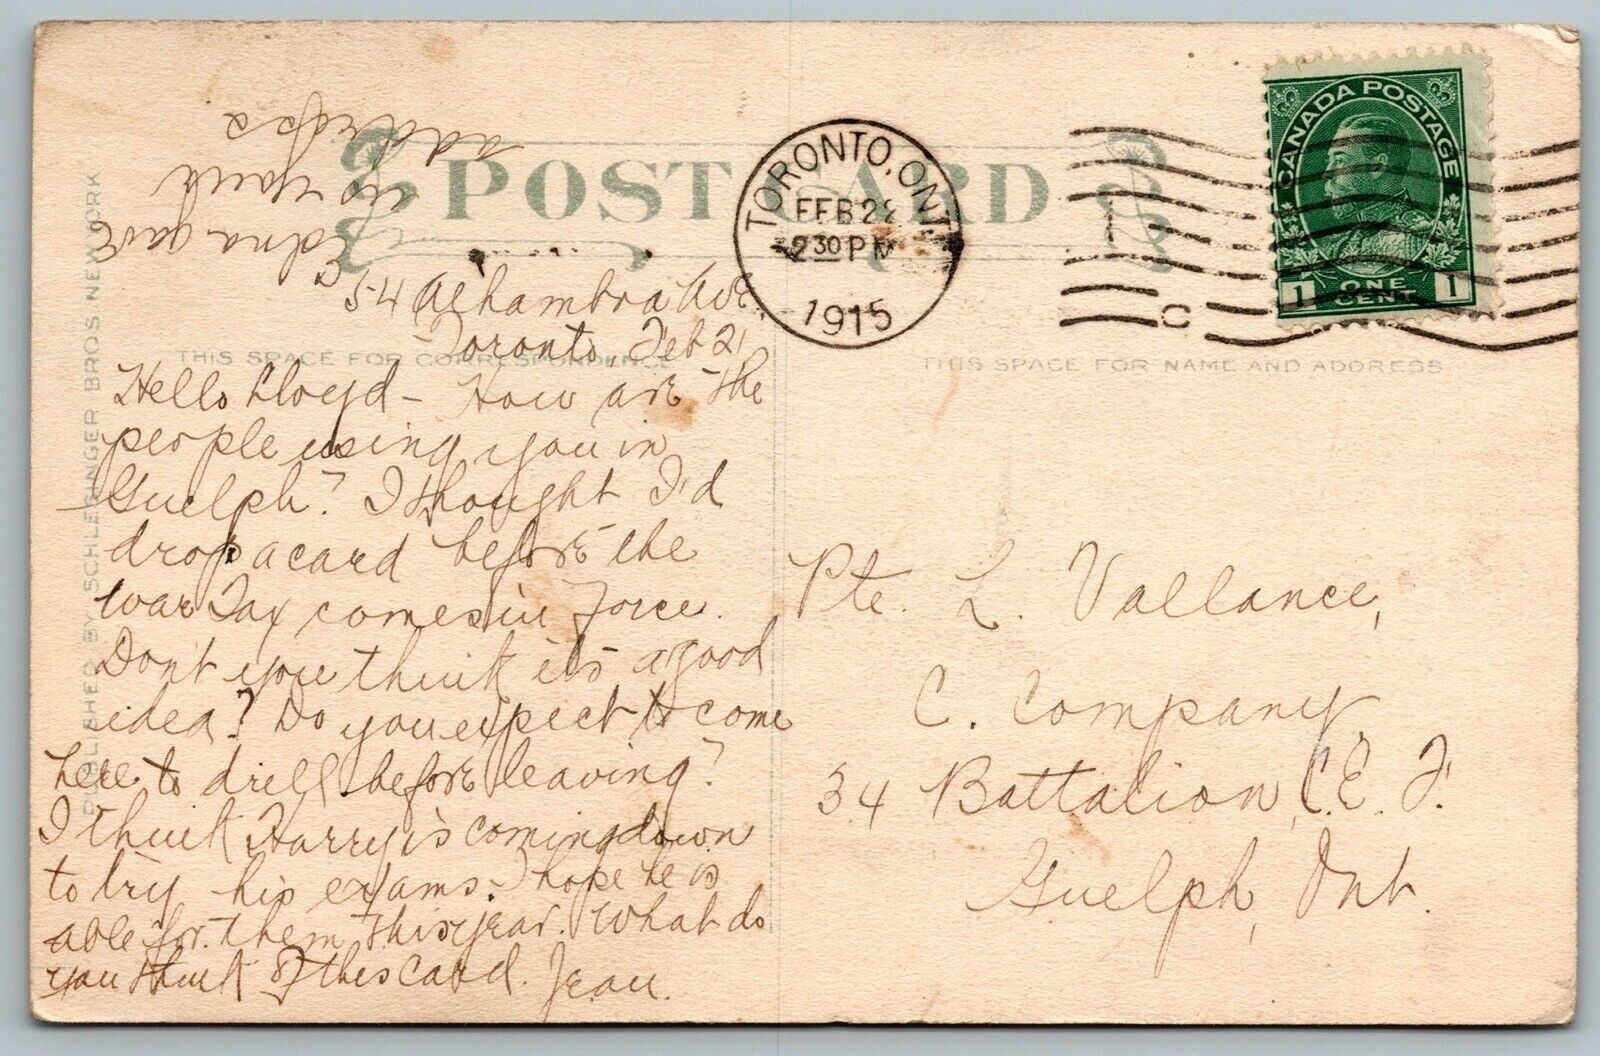 POST CARD
TORONTO, ONT.
FEB 22
2 30 PM
1915
C
CANADA POSTAGE
1 ONE CENT 1
THIS SPACE FOR CORRESPONDENCE
THIS SPACE FOR NAME AND ADDRESS
PUBLISHED BY SCHLESINGER BROS NEW YORK
Edna gave
us your
address
54 Alhambra Ave.
Toronto, Feb 21
Hello Lloyd - How are the
people using you in
Guelph? I thought I'd
drop a card before the
war Tax comes in force.
Dont you think its a good
idea? Do you expect to come
here to drill before leaving?
I think Harry is coming down
to try his exams. I hope he is
able for them this year. What do
you think of this card. Jean.
Pte. L. Vallance,
C. Company
34 Battalion, C. E. F.
Guelph, Ont.